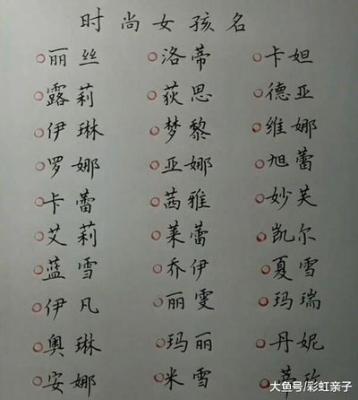 时尚女孩名
丽丝 洛蒂 卡妲
露莉 荻思 德亚
伊琳 梦黎 维娜
罗娜 亚娜 旭蕾
卡蕾 茜雅 妙芙
艾莉 莱蕾 凯尔
蓝雪 乔伊 夏雪
伊凡 丽雯 玛瑞
奥琳 玛丽 丹妮
安娜 米雪
大鱼号/彩虹亲子